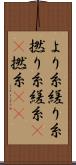 より糸縒り糸
撚り糸縒糸
撚糸